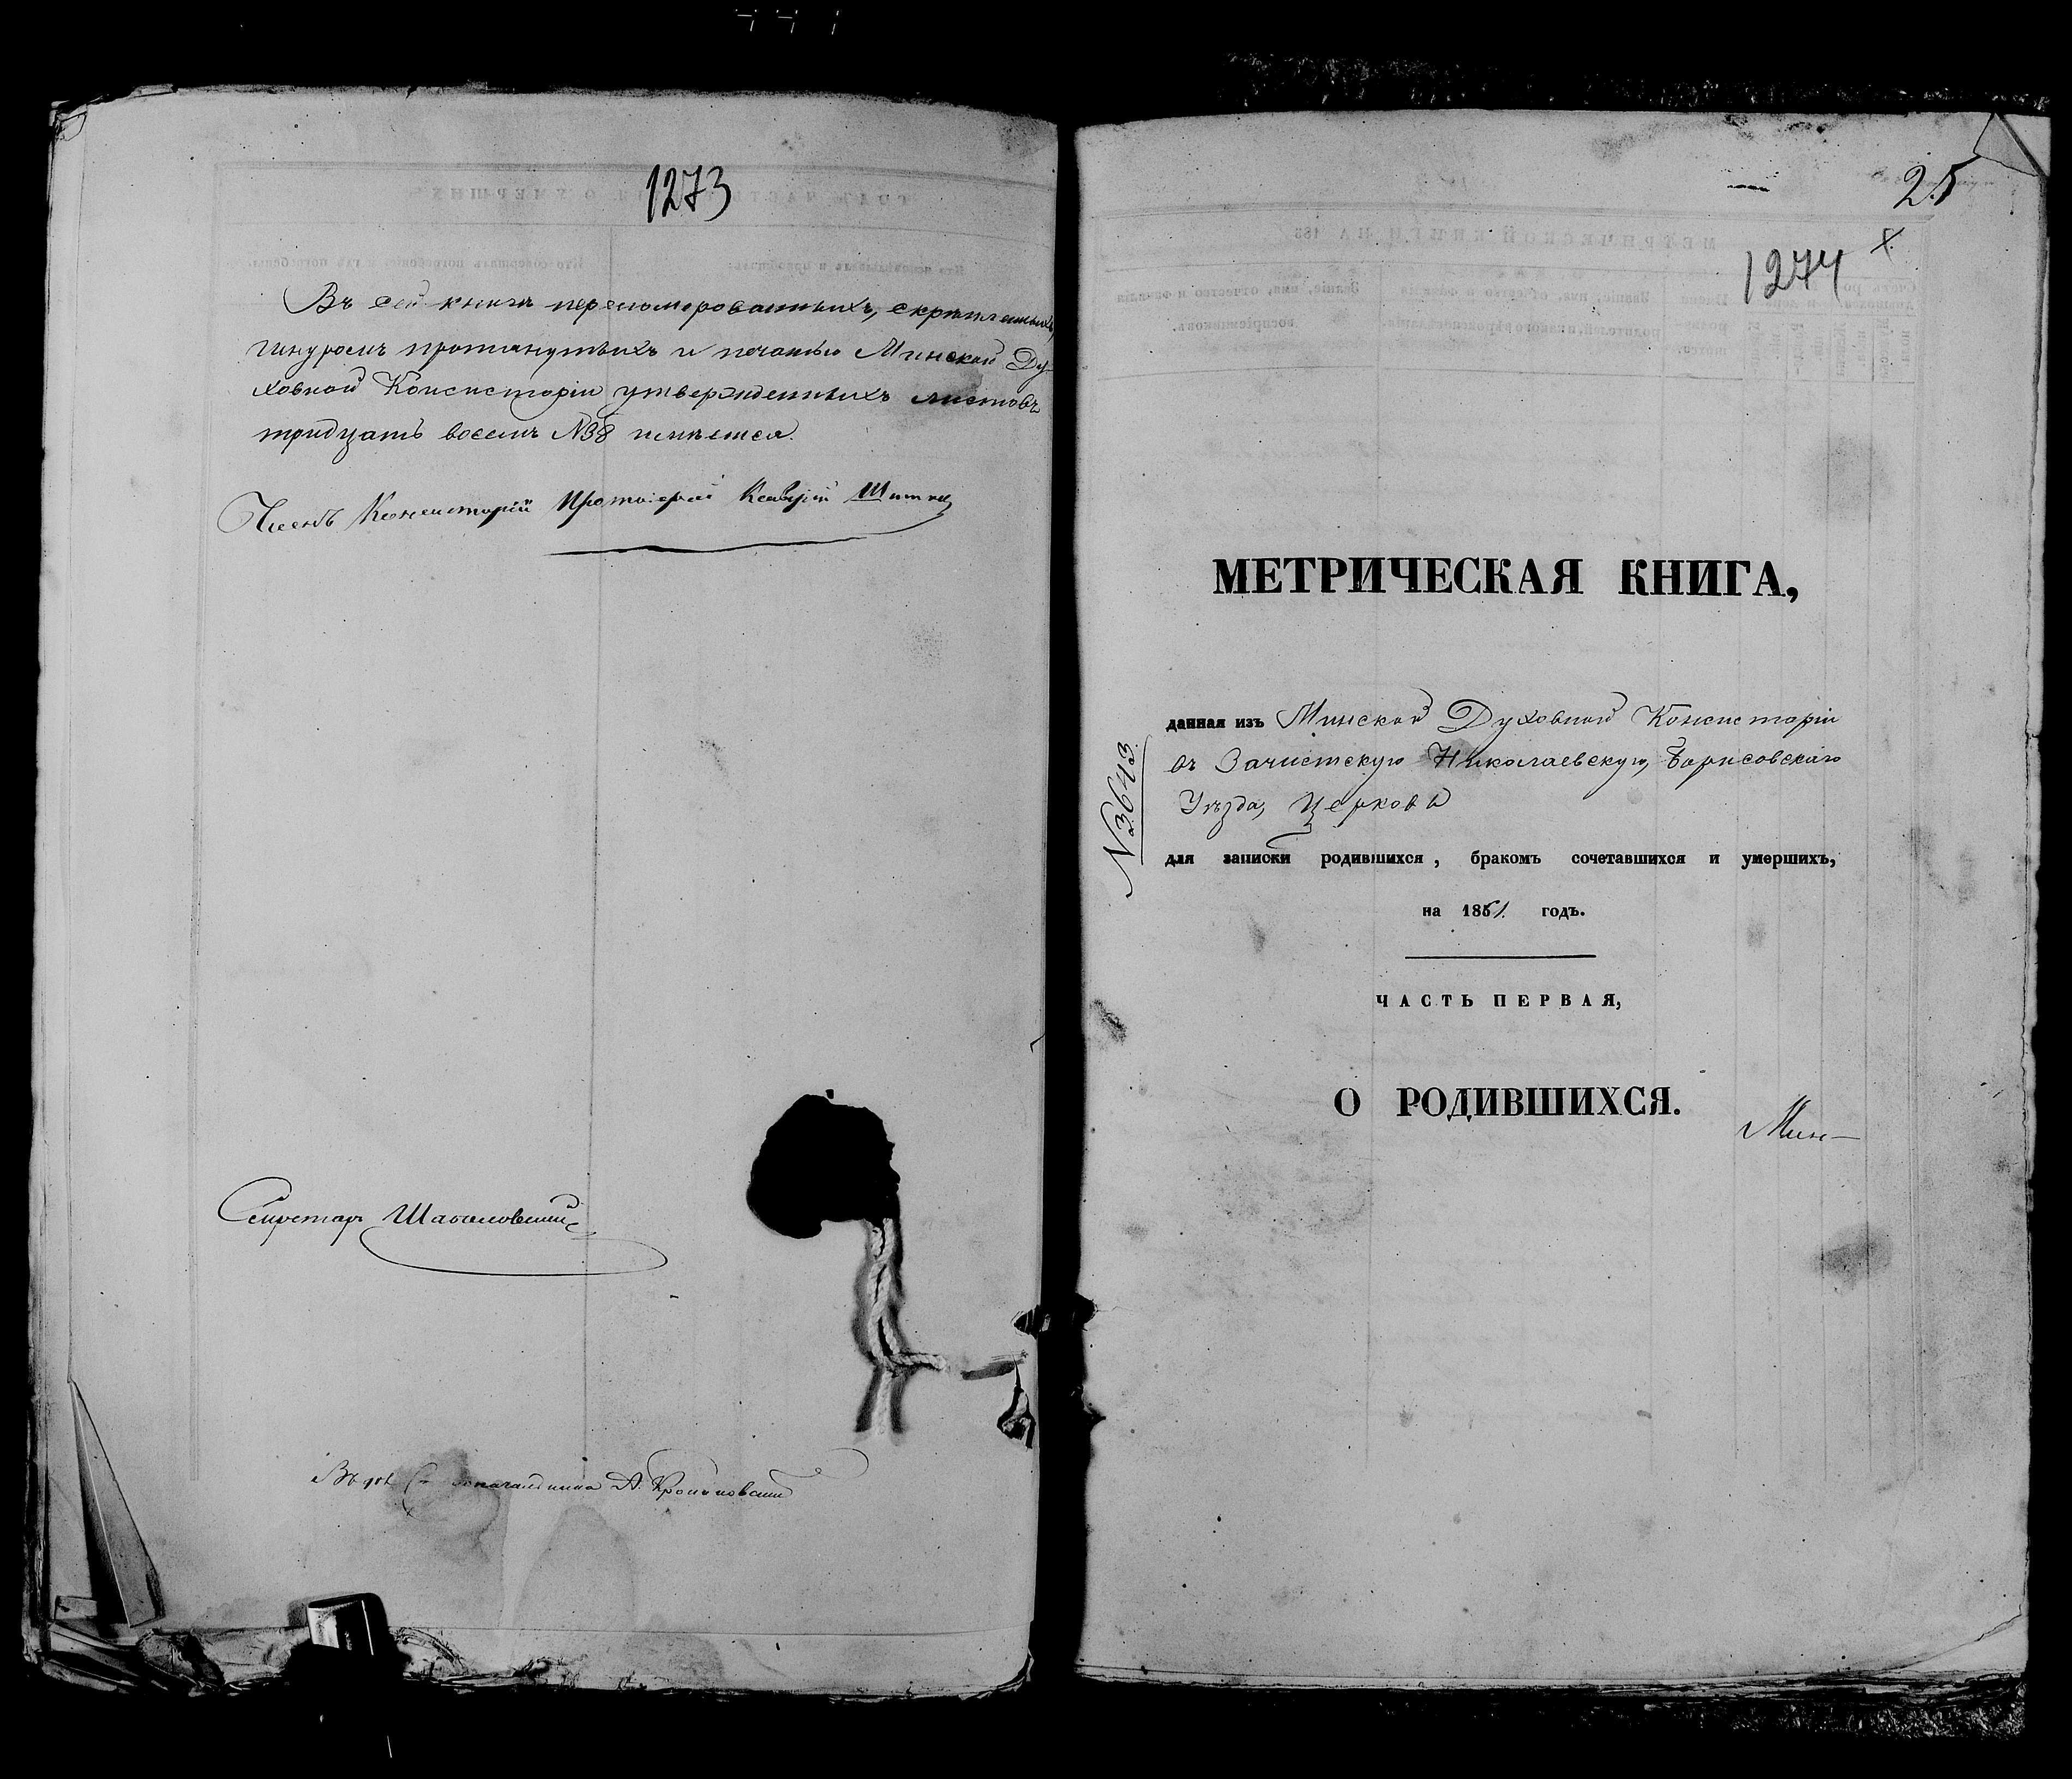 1273
Въ сей книгѣ перономерованныхъ, скрѣпленныхъ,
шнуромъ протянутыхъ и печатью Минской Ду-
ховной Консисторіи утвержденныхъ листовъ
тридцать восемь №38 имѣется.
Членъ Консисторіи Протоіерей
Секретарь
А.
25
1274
МЕТРИЧЕСКАЯ КНИГА,
данная изъ Минской Духовной Консисторіи
въ Зачистскую Николаевскую, Борисовскаго
Уѣзда, Церковь
№3643
для записки родившихся, бракомъ сочетавшихся и умершихъ,
на 1851 годъ.
ЧАСТЬ ПЕРВАЯ,
О РОДИВШИХСЯ.
Мин-